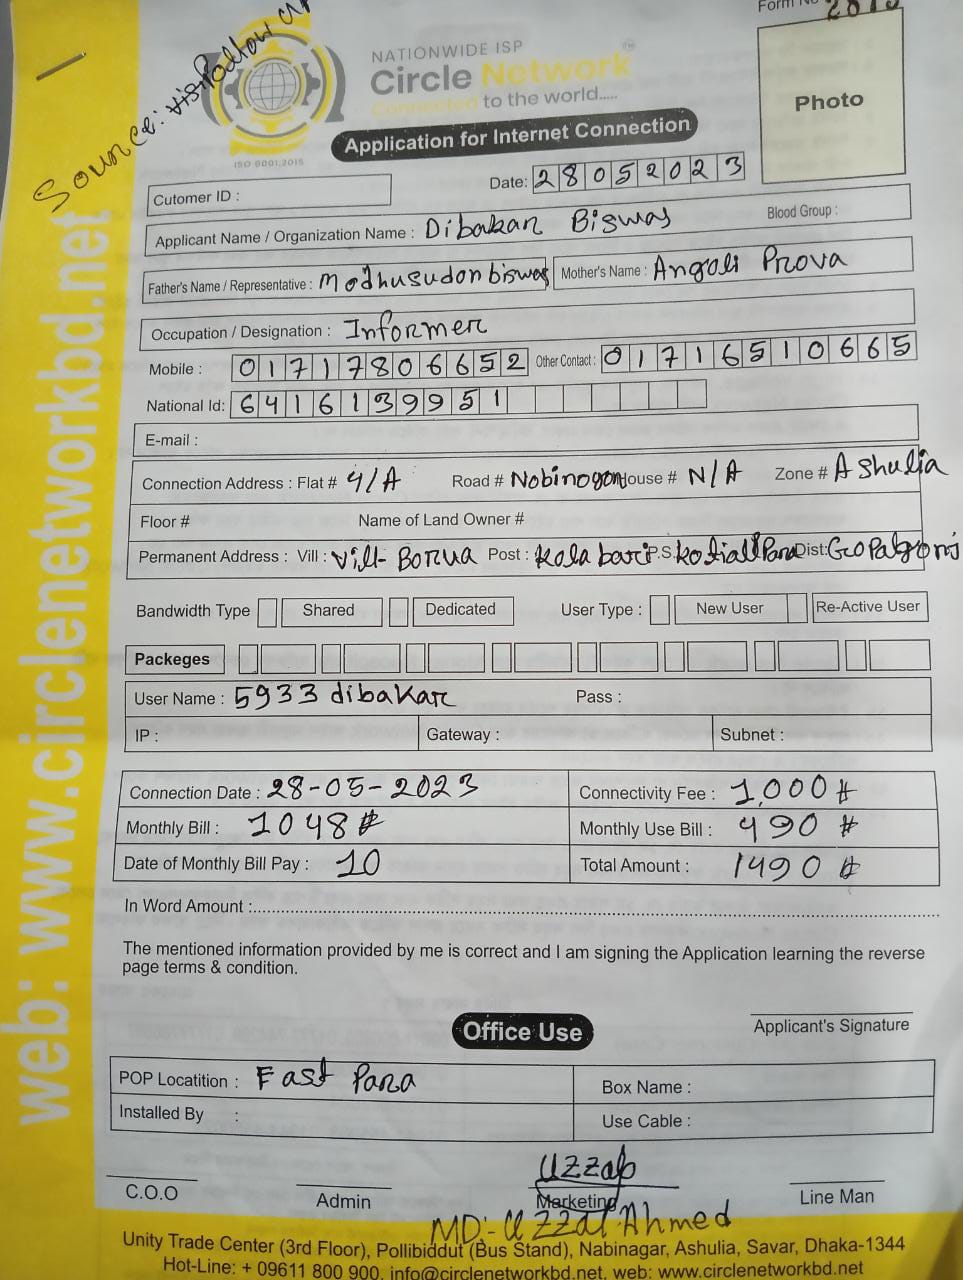 Form No 2015
Source:
NATIONWIDE ISP
Circle Network™
Connected to the world.....
ISO 9001:2015
Application for Internet Connection
Photo
Cutomer ID :
Date: 28052023
Applicant Name / Organization Name : Dibakar Biswas Blood Group :
Father's Name / Representative : Modhusudon biswas Mother's Name : Angoli Prova
Occupation / Designation : Informer
Mobile : 01717806652 Other Contact : 01716510665
National Id: 6416139951
E-mail :
Connection Address : Flat # 4/A Road # Nobinogor House # N/A Zone # Ashulia
Floor # Name of Land Owner #
Permanent Address : Vill : Vill- Borua Post : Kola bari P.S. kotiallPara Dist: GoPalgonj
Bandwidth Type Shared Dedicated User Type : New User Re-Active User
Packeges
User Name : 5933 dibakar Pass :
IP : Gateway : Subnet :
Connection Date : 28-05-2023 Connectivity Fee : 1,000 #
Monthly Bill : 1048 # Monthly Use Bill : 490 #
Date of Monthly Bill Pay : 10 Total Amount : 1490 #
In Word Amount :
The mentioned information provided by me is correct and I am signing the Application learning the reverse
page terms & condition.
Applicant's Signature
Office Use
POP Locatition : East Para Box Name :
Installed By : Use Cable :
Uzzal
C.O.O Admin Marketing Line Man
MD:- Uzzal Ahmed
Unity Trade Center (3rd Floor), Pollibiddut (Bus Stand), Nabinagar, Ashulia, Savar, Dhaka-1344
Hot-Line: + 09611 800 900, info@circlenetworkbd.net, web: www.circlenetworkbd.net
web: www.circlenetworkbd.net